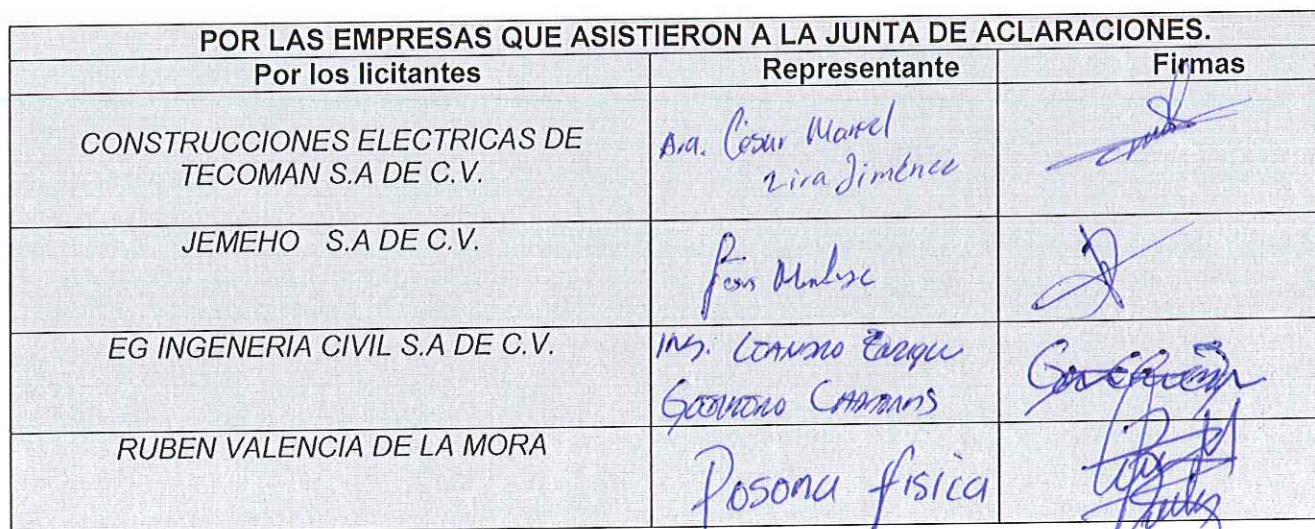 POR LAS EMPRESAS QUE ASISTIERON A LA JUNTA DE ACLARACIONES.
Por los licitantes Representante Firmas
CONSTRUCCIONES ELECTRICAS DE
TECOMAN S.A DE C.V.
César
Lira Jiménez
JEMEHO S.A DE C.V.
EG INGENERIA CIVIL S.A DE C.V.
ING.
RUBEN VALENCIA DE LA MORA
física